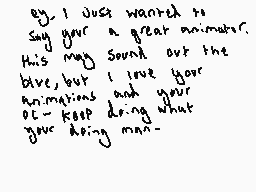 ey- I Just wanted to
say your a great animator.
this may sound out the
blve, but I love your
animations and your
OC- keep doing what
your doing man-